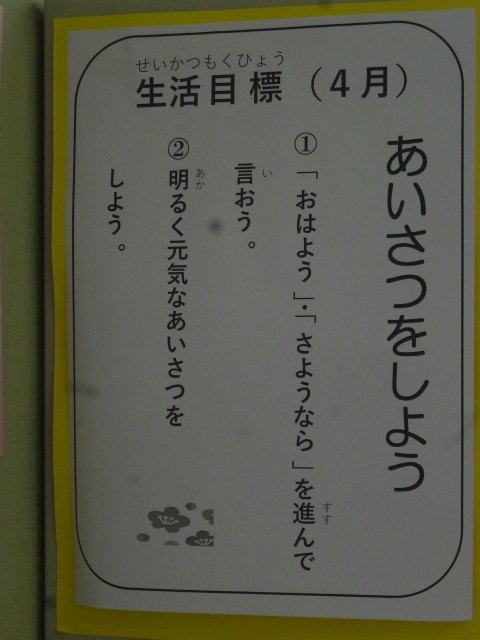 せいかつもくひょう
生活目標（4月）
あいさつをしよう
①「おはよう」・「さようなら」を進んで
すす
言おう。
い
②明るく元気なあいさつを
あか
しよう。